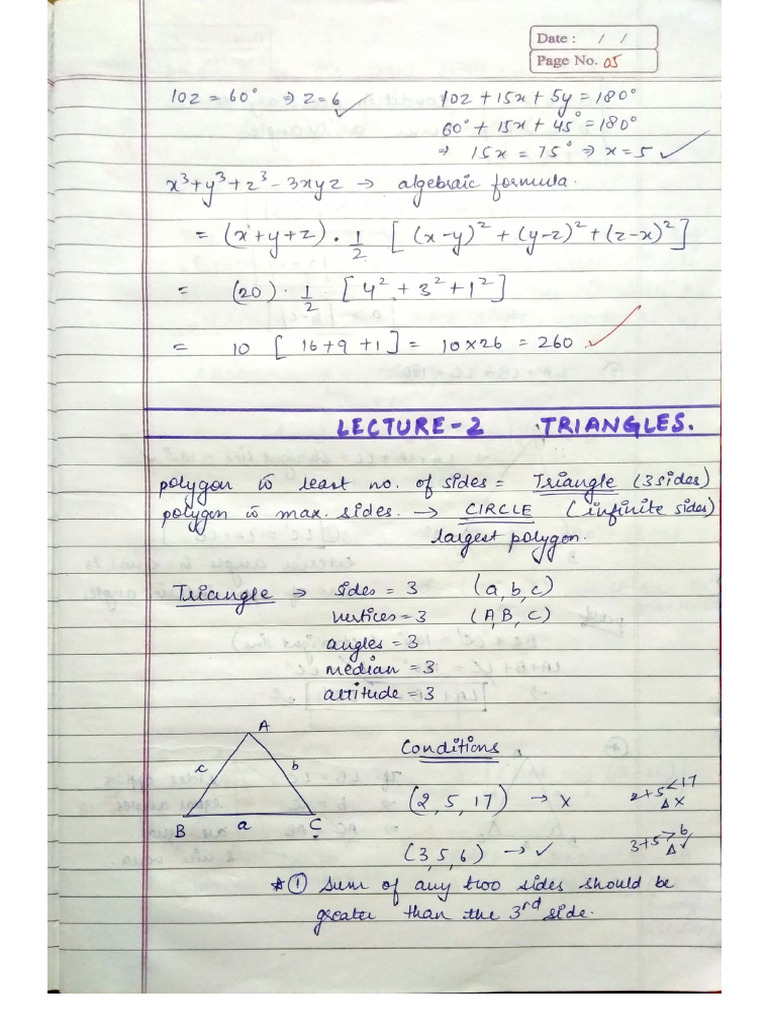 Date : / /
Page No. 05
10z = 60° ⇒ z = 6 ✓ 10z + 15x + 5y = 180°
60° + 15x + 45° = 180°
⇒ 15x = 75° ⇒ x = 5 ✓
x³+y³+z³-3xyz → algebraic formula.
= (x+y+z) · 1/2 [ (x-y)² + (y-z)² + (z-x)² ]
= (20) · 1/2 · [ 4² + 3² + 1² ]
= 10 [ 16+9+1 ] = 10×26 = 260 ✓
LECTURE-2 TRIANGLES.
polygon w least no. of sides = Triangle (3 sides)
polygon w max. sides. → CIRCLE (infinite sides)
largest polygon.
Triangle → sides = 3 (a, b, c)
vertices = 3 (A, B, C)
angles = 3
median = 3
altitude = 3
A
Conditions
c b
(2, 5, 17) → x 2+5<17 Δ x
B a C
(3, 5, 6) → ✓ 3+5>6 Δ ✓
* ① Sum of any two sides should be
greater than the 3rd side.